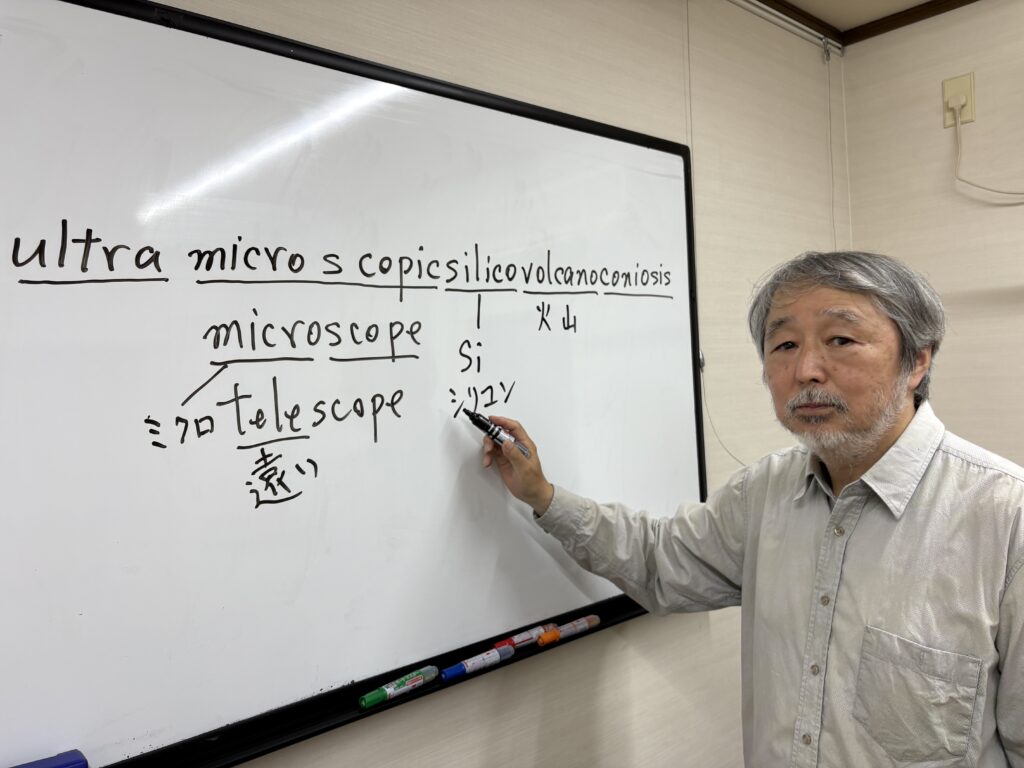 ultra microscopicsilicovolcanoconiosis
microscope
火山
Si
ミクロ telescope
シリコン
遠い